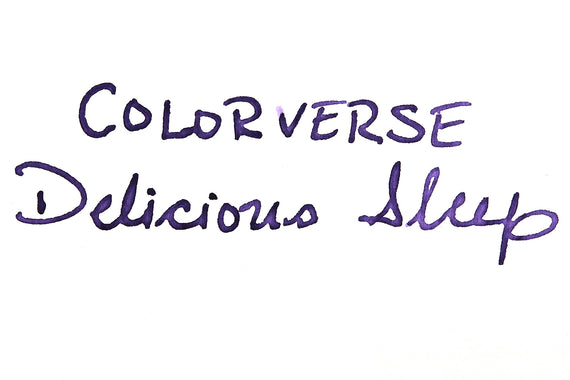 COLORVERSE
Delicious Sleep